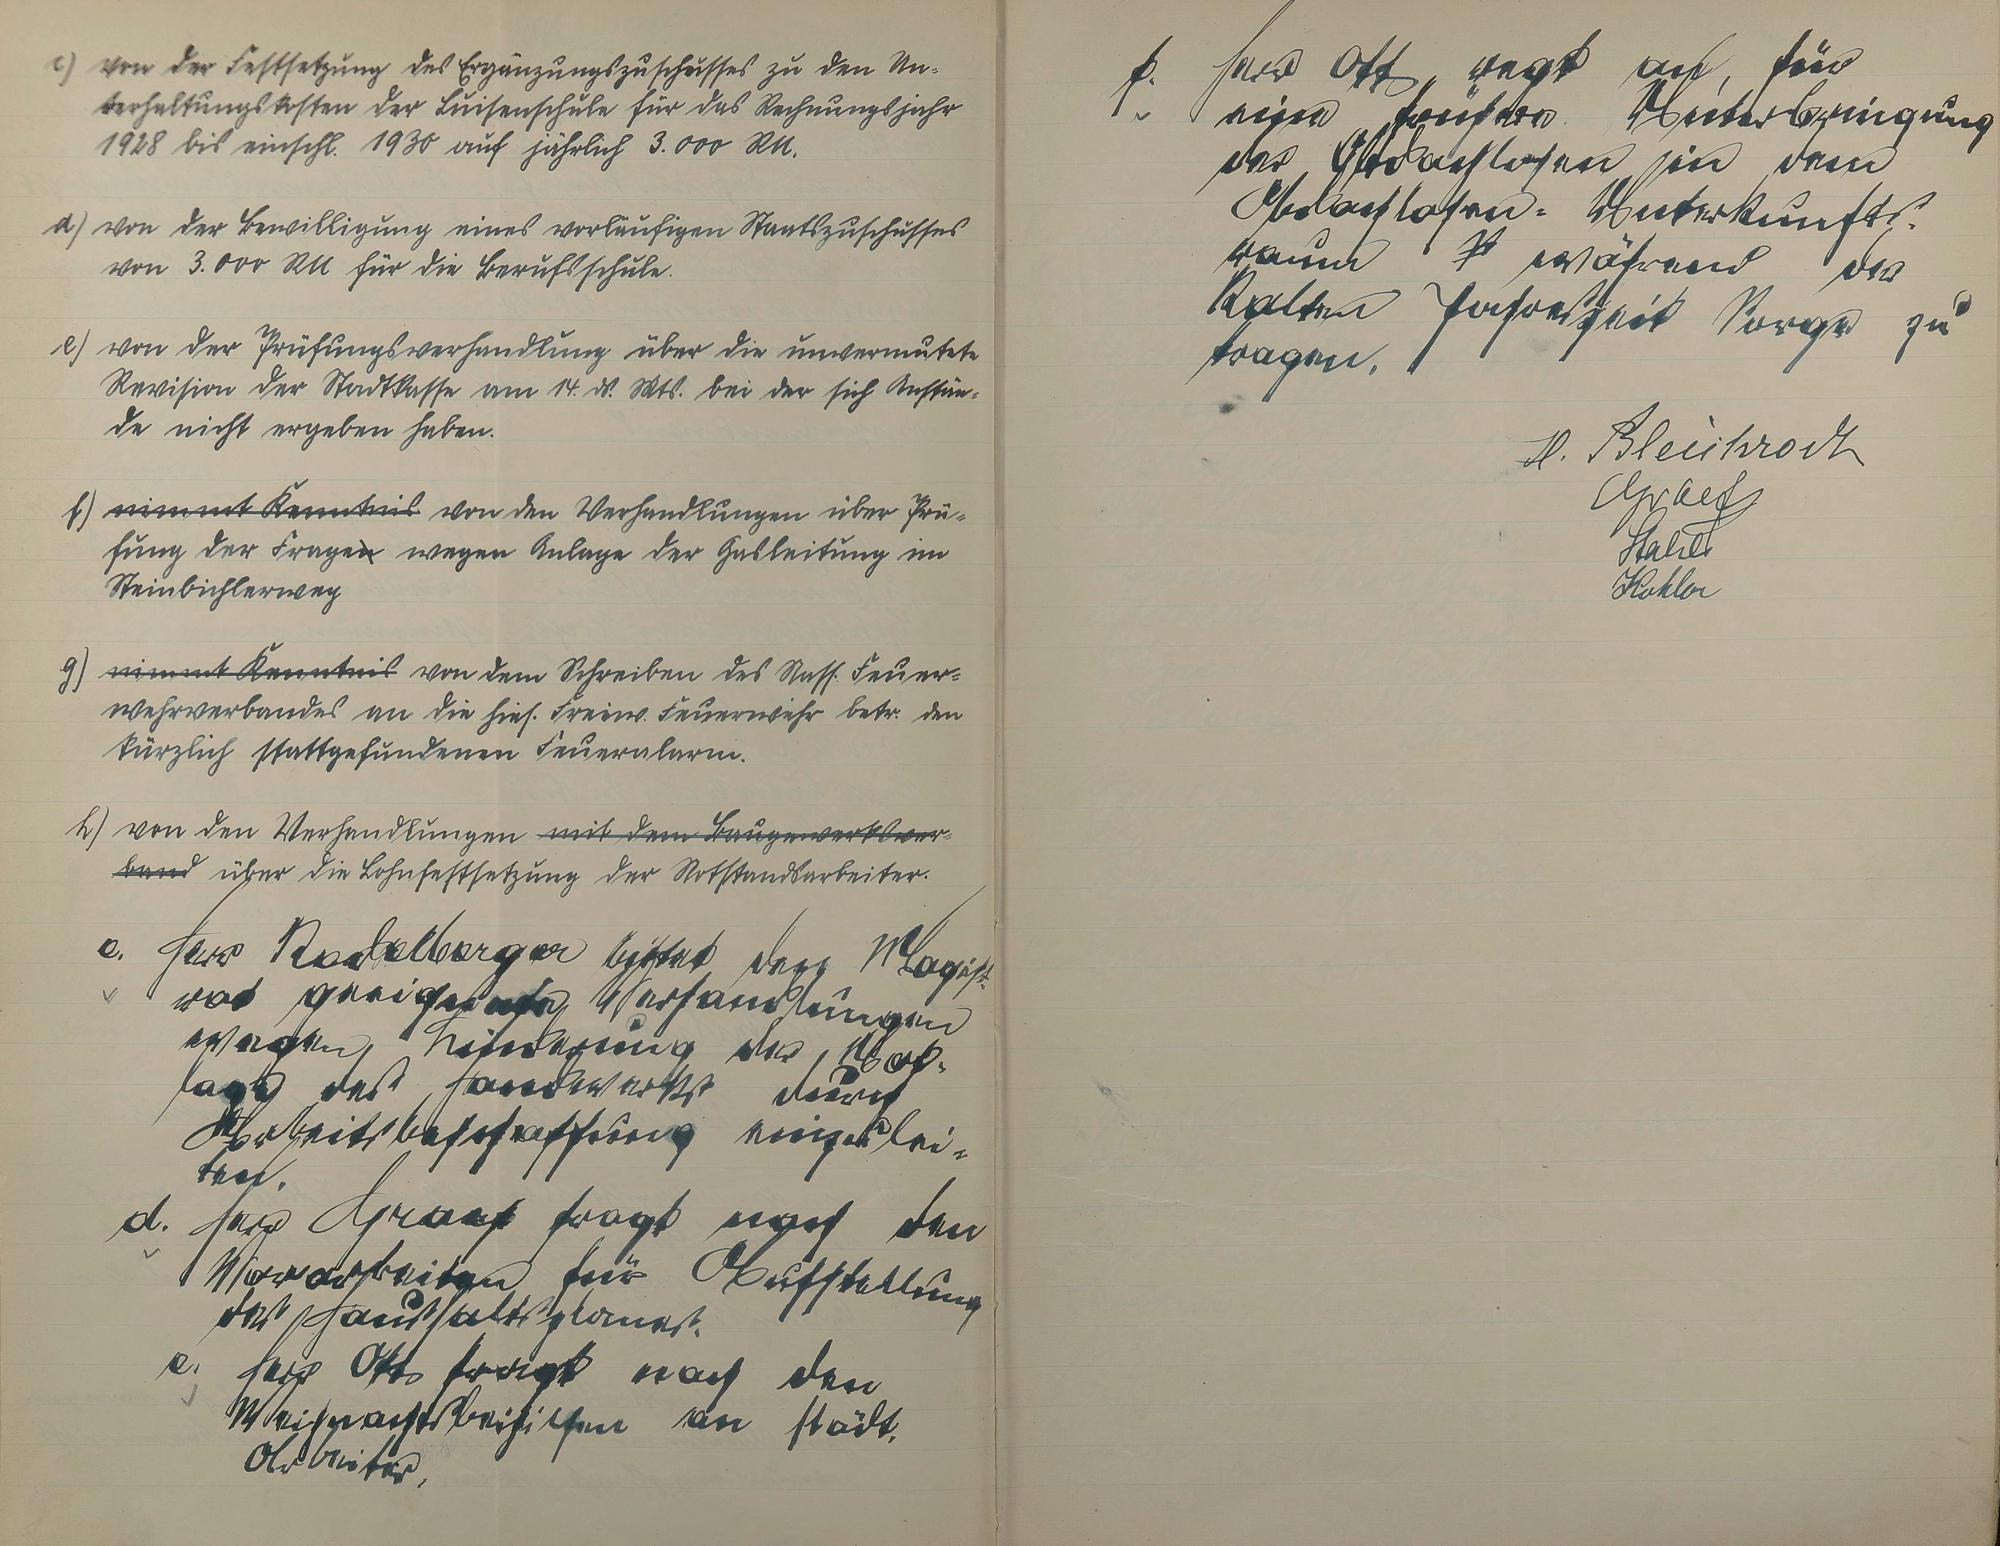 c) von der Festsetzung des Ergänzungszuschusses zu den Un-
terhaltungskosten der Luisenschule für das Rechnungsjahr
1928 bis einschl. 1930 auf jährlich 3.000 RM.
d) von der Bewilligung eines vorläufigen Staatszuschusses
von 3.000 RM für die Berufsschule.
e) von der Prüfungsverhandlung über die unvermutete
Revision der Stadtkasse am 14. ds. Mts. bei der sich Anstän-
de nicht ergeben haben.
f) nimmt Kenntnis von den Verhandlungen über Prü-
fung der Fragen wegen Anlage der Gasleitung im
Steinbichlerweg
g) nimmt Kenntnis von dem Schreiben des Nass. Feuer-
wehrverbandes an die hies. Freiw. Feuerwehr betr. den
kürzlich stattgefundenen Feueralarm.
h) von den Verhandlungen mit dem Baugewerksver-
band über die Lohnfestsetzung der Notstandsarbeiter.
c. Herr bittet den Magist-
rat geeignete Verhandlungen
wegen Linderung der Not-
lage des Handwerks durch
Arbeitsbeschaffung einzulei-
ten.
d. Herr Graef fragt nach den
Vorarbeiten für Aufstellung
des Haushaltsplanes.
e. Herr Ott fragt nach den
Weihnachtsbeihilfen an städt.
Arbeiter.
f. Herr Ott regt an, für
eine Unterbringung
der Obdachlosen in dem
Obdachlosen-Unterkunfts-
raum während der
kalten Jahreszeit Sorge zu
tragen.
H. Bleichrodt
Graef
Stahl
Kohler